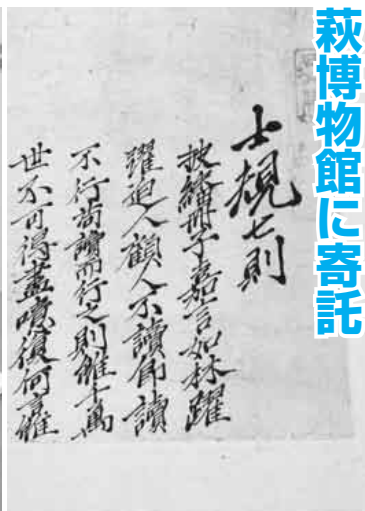 萩博物館に寄託
士規七則
披繙冊子嘉言如林躍
躍迫人顧人不讀即讀
不行苟讀而行之則雖千萬
世不可得盡噫復何言雖